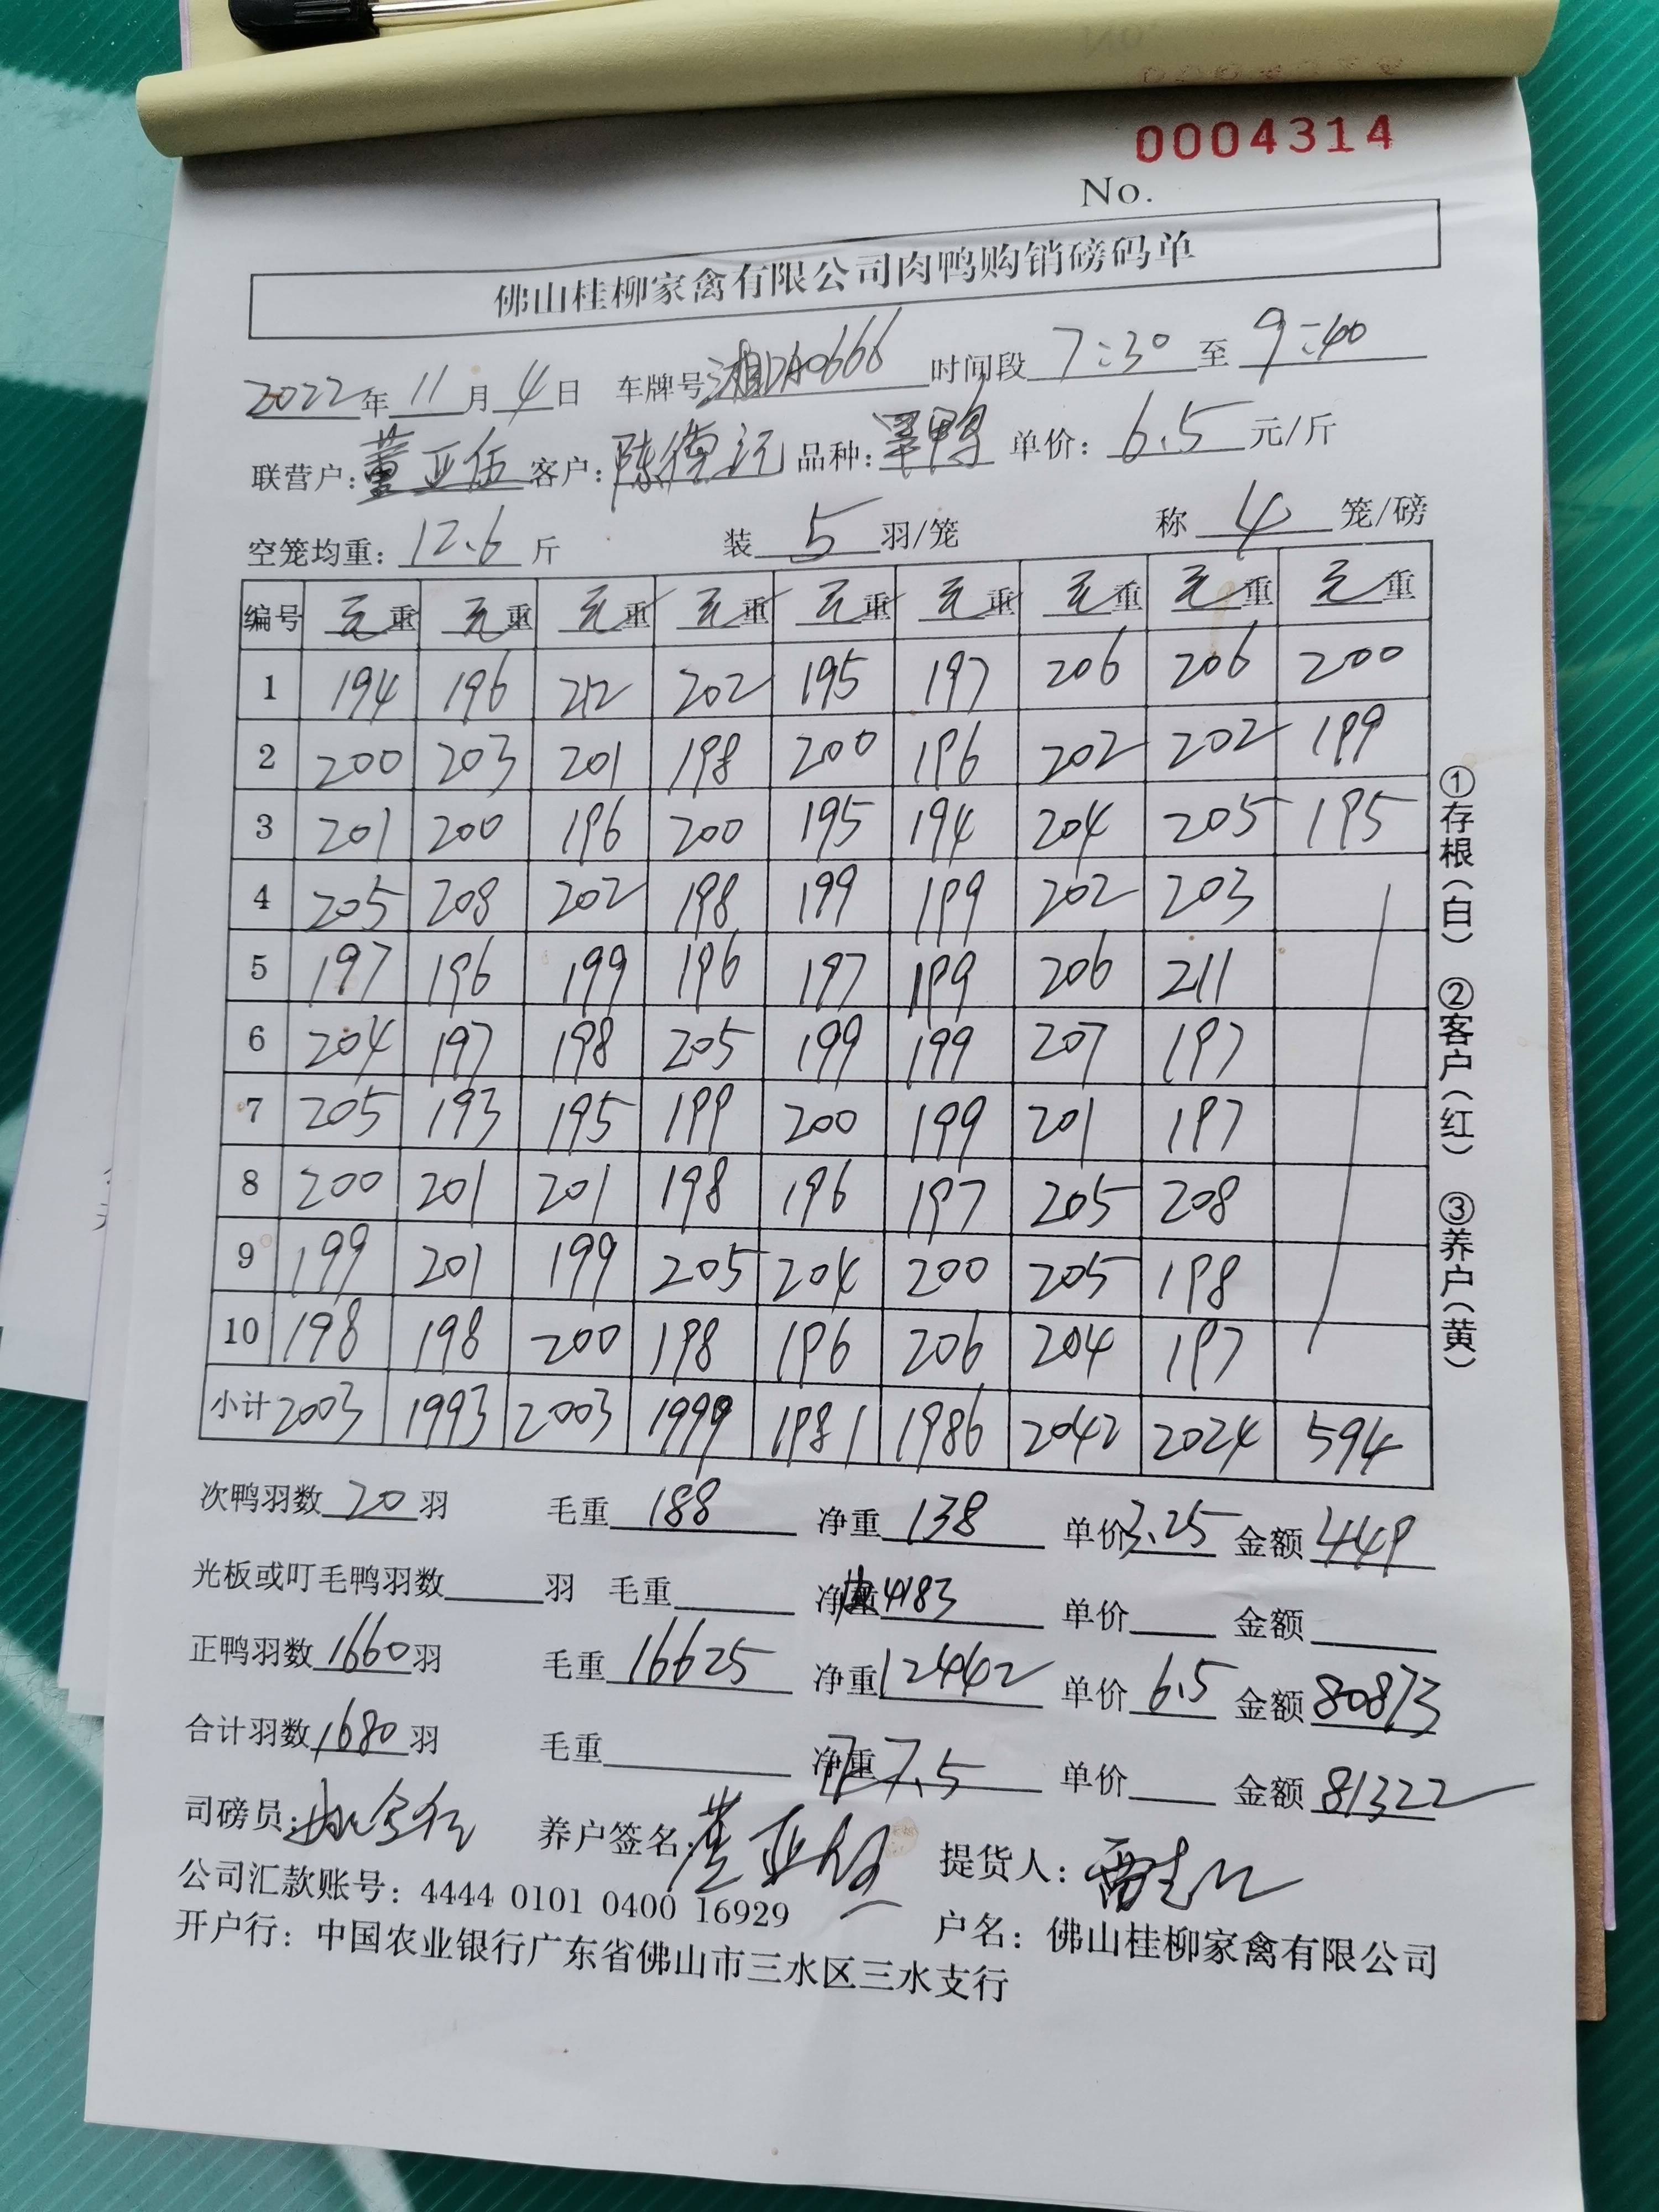 0004314
No.
佛山桂柳家禽有限公司肉鸭购销磅码单
2022年11月4日 车牌号湘DA0666 时间段7:30至9:40
联营户:董亚伍 客户:陈德 品种:鸭 单价:6.5元/斤
空笼均重:12.6斤 装5羽/笼 称4笼/磅
编号 毛重 毛重 毛重 毛重 毛重 毛重 毛重 毛重 毛重
1 194 196 212 202 195 197 206 206 200
2 200 203 201 198 200 196 202 202 199
3 201 200 196 200 195 194 204 205 195
4 205 208 202 198 199 199 202 203
5 197 196 199 196 197 199 206 211
6 204 197 198 205 199 199 207 197
7 205 193 195 199 200 199 201 197
8 200 201 201 198 196 197 205 208
9 199 201 199 205 204 200 205 198
10 198 198 200 198 196 206 204 197
小计 2003 1993 2003 1999 1981 1986 2042 2024 594
次鸭羽数20羽 毛重188 净重138 单价3.25 金额449
光板或叮毛鸭羽数 羽 毛重 净重4183 单价 金额
正鸭羽数1660羽 毛重16625 净重12442 单价6.5 金额80873
合计羽数1680羽 毛重 净重77.5 单价 金额81322
司磅员: 养户签名:董亚伍 提货人:
公司汇款账号:4444 0101 0400 16929 户名:佛山桂柳家禽有限公司
开户行:中国农业银行广东省佛山市三水区三水支行
①存根(白) ②客户(红) ③养户(黄)